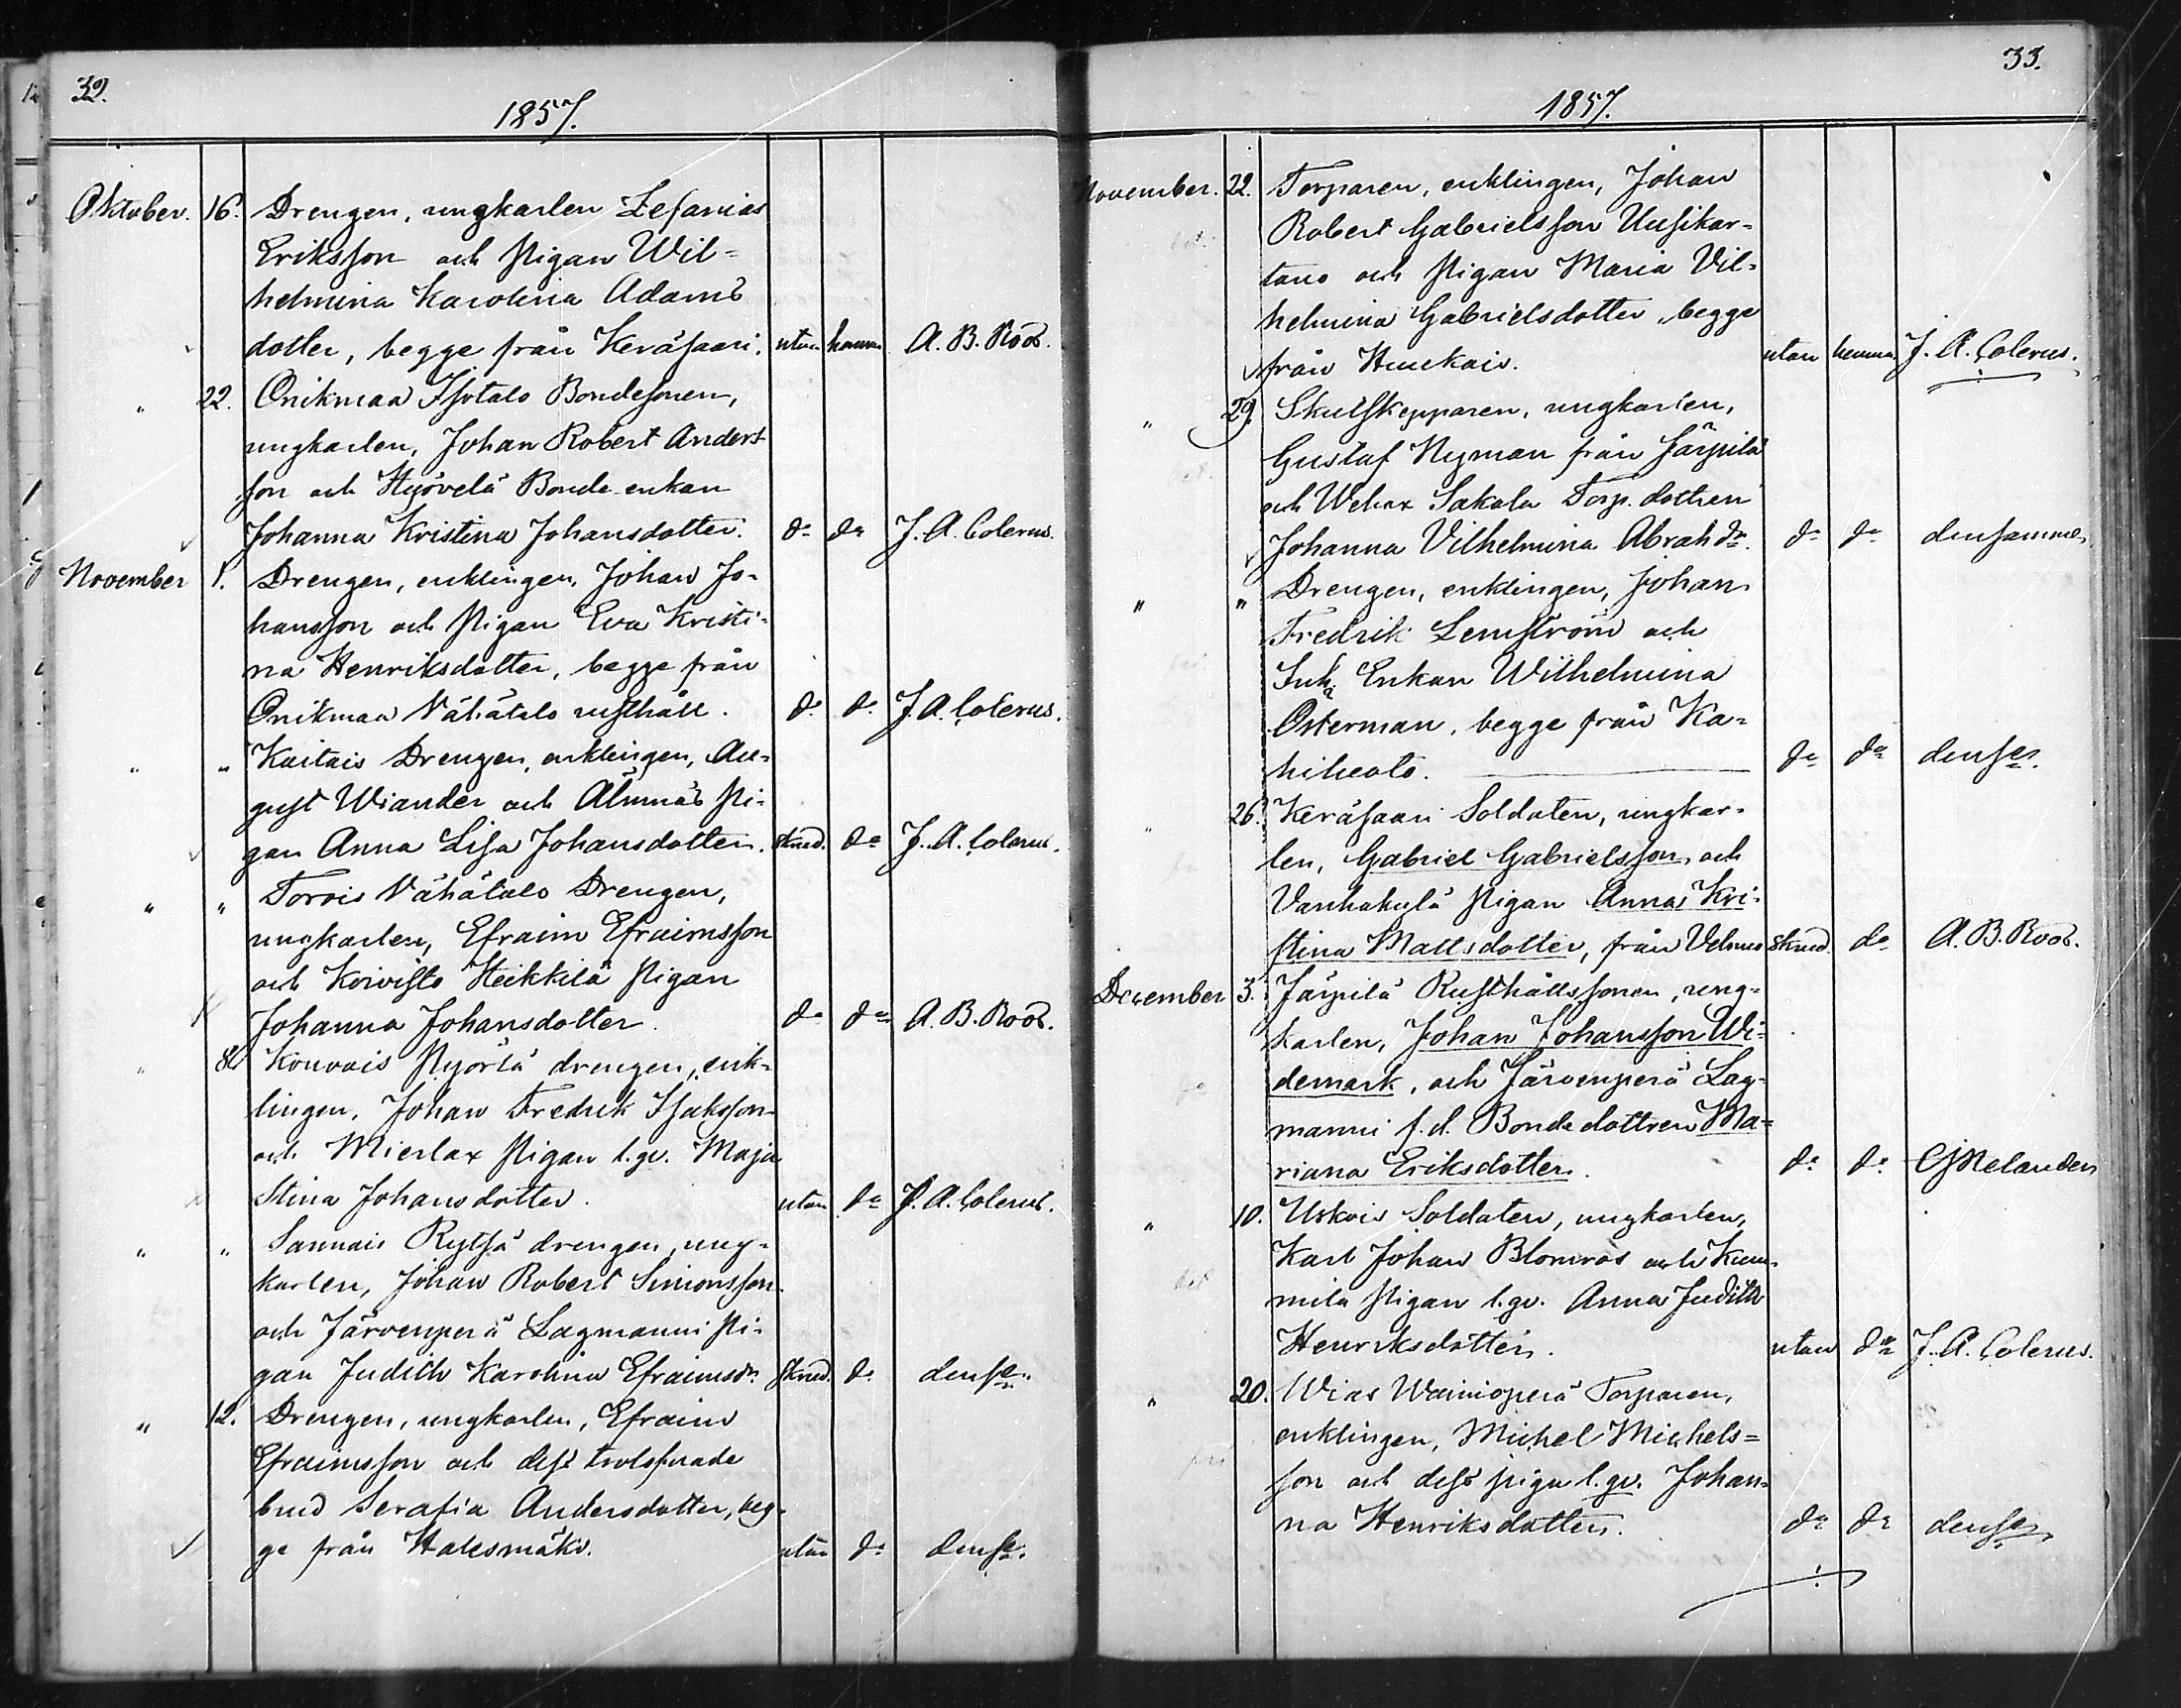 32.
1857.
Oktober. 16. Drengen, ungkarlen Zefanias
Eriksson och Pigan Wil=
helmina Karolina Adams
dotter, begge från Keräsaari. utan hemma A. B. Roos.
" 22. Onikmaa Isotalo Bondesonen,
ungkarlen, Johan Robert Anders
son och Hyövelä Bonde enkan
Johanna Kristina Johansdotter. do do J. A. Colerus.
November 1. Drengen, enklingen, Johan Jo=
hansson och Pigan Eva Kristi=
na Henriksdotter, begge från
Onikmaa Vähätalo rusthåll. do do J. A. Colerus.
" " Kaitais Drengen, enklingen, Au=
gust Wiander och Alsmäs Pi=
gan Anna Lisa Johansdotter. skrud. do J. A. Colerus.
" " Torois Vähätalo Drengen,
ungkarlen, Efraim Efraimsson
och Koivisto Heikkilä Pigan
Johanna Johansdotter. do do A. B. Roos.
" 8. Kouvois Pyörlä drengen, enk=
lingen, Johan Fredrik Isaksson
och Mierlax Pigan l. gv. Maja
Stina Johansdotter. utan do J. A. Colerus.
" " Sannais Rytsä drengen, ung=
karlen, Johan Robert Simonsson
och Järvenperä Lagmanni Pi=
gan Judith Karolina Efraimsdr. skrud. do dense.
" 12. Drengen, ungkarlen, Efraim
Efraimsson och dess trolofvade
brud Serafia Andersdotter, beg=
ge från Halesmäki. utan do dense.
33.
1857.
November. 22. Torparen, enklingen, Johan
Robert Gabrielsson Uusikar=
tano och Pigan Maria Vil=
helmina Gabrielsdotter, begge
från Huukais. utan hemma. J. A. Colerus.
" 29. Skutskepparen, ungkarlen,
Gustaf Nyman från Järpilä
och Wehax Sakola Torp. dottren
Johanna Vilhelmina Abrahdr. do do densamme.
" " Drengen, enklingen, Johan
Fredrik Lemström och
Inh. Enkan Wilhelmina
Österman, begge från Ka=
hiluoto. do do dense.
" 26. Keräsaari Soldaten, ungkar=
len, Gabriel Gabrielsson, och
Vanhakylä Pigan Anna Kri=
stina Mattsdotter, från Velmo skrud. do A. B. Roos.
December 3. Järpilä Rusthållssonen, ung=
karlen, Johan Johansson Wi=
demark, och Järvenperä Lag=
manni f. d. Bondedottren Ma=
riana Eriksdotter. do do CJ Melander
" 10. Uskois Soldaten, ungkarlen,
Karl Johan Blomros och Kum=
mila Pigan l. gv. Anna Judith
Henriksdotter. utan do J. A. Colerus.
" 20. Wias Wainioperä Torparen,
enklingen, Michel Michels=
son och dess piga l. gv. Johan=
na Henriksdotter. do do dense.